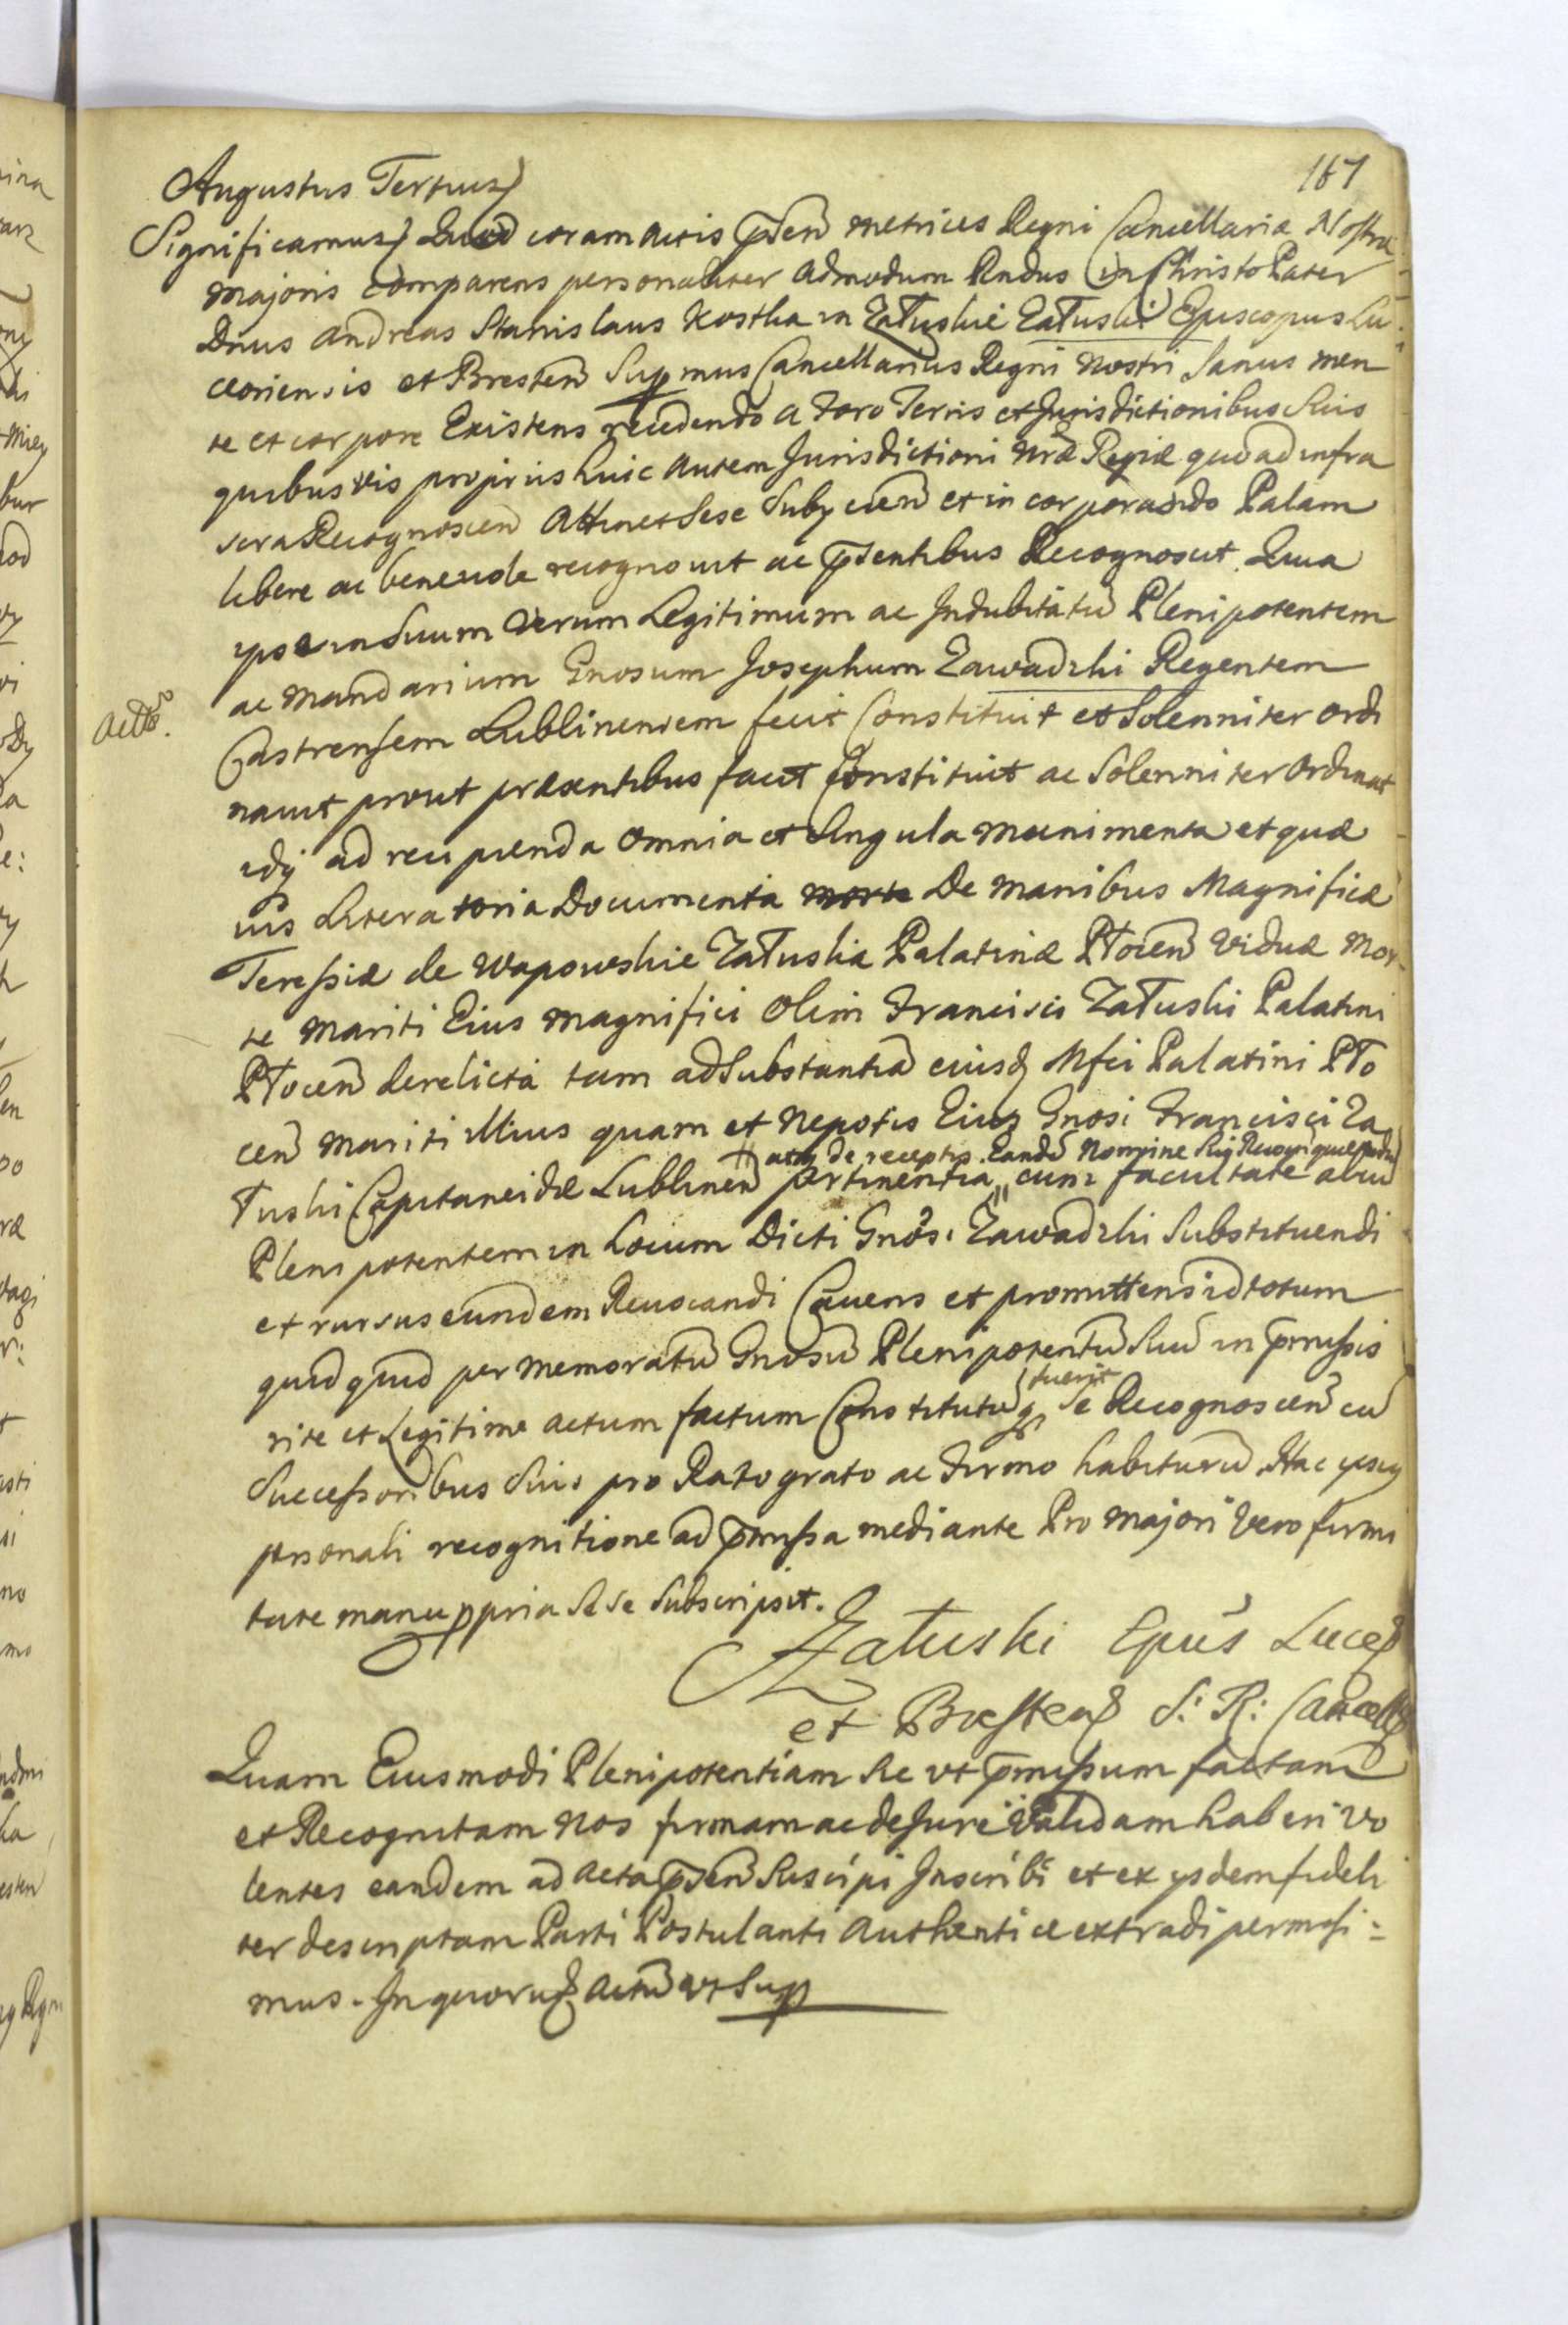 167
Augustus Tertius
Significamus Quod coram Actis pñsen Metrices Regni Cancellariæ Nostræ
Majoris comparens personaliter Admodum Rndus in Christo Pater
Dnus Andreas Stanislaus Kostka in Załuskie Załuski Episcopus Lu
ceoriensis et Bresten Supmus Cancellarius Regni Nostri Sanus men
te et corpore Existens recedendo a Foro Terris et Jurisdictionibus Suis
quibusvis proprijs huic autem Jurisdictioni Nræ Regiæ quo ad infra
scra Recognoscen Attinet sese Subjicien et incorporando Palam
libere ac benevole recognovit ac pñsentibus Recognoscit. Quia
ipse in Suum Verum Legitimum ac Indubitatū Plenipotentem
ac Mandarium Gnosum Josephum Zawadzki Regentem
Actor.
Castrensem Lublinensem fecit Constituit et Solenniter ordi
navit prout præsentibus facit Constituit ac Solenniter Ordinat
idq ad recipienda omnia et Singula munimenta et quæ
vis Literatoria Documenta De manibus Magnificæ
Teressiæ de Wapowskie Załuska Palatinæ Płocen Viduæ Mor
te Mariti Eius Magnifici olim Francisci Załuski Palatini
Płocen derelicta tam ad Substantiā eiusq Mfci Palatini Pło
cen Mariti illius quam et Nepotis Eius Gnosi Francisci Za
atq de receptis Eandē Nomine
łuski Capitaneidæ Lublinen pertinentia cum facultate aliū
Plenipotentem in Locum Dicti Gnosi Zawadzki Substituendi
et rursus eundem Revocandi Cavens et promittens id totum
quidquid per memoratū Gnosū Plenipotentē Suū in præmissis
fuerit
rite et Legitime actum factum Constitutūq Se Recognoscen cū
Successoribus Suis pro Rato grato ac Firmo habiturū. Hac ipsius
personali recognitione ad pmissa mediante Pro majori Vero firmi
tate manu ppria Sese Subscripsit.
Załuski Epus Luceo
et Bresten S: R: Cancell
Quam Eiusmodi Plenipotentiam Se ut pmissum factam
et Recognitam Nos firmam ac de Jure Validam haberi vo
lentes eandem ad Acta pñsen Suscipi Inscribi et ex ijsdem fideli
ter descriptam Parti Postulanti Authentice extradi permisi=
mus. In quorū Actū ut Sup